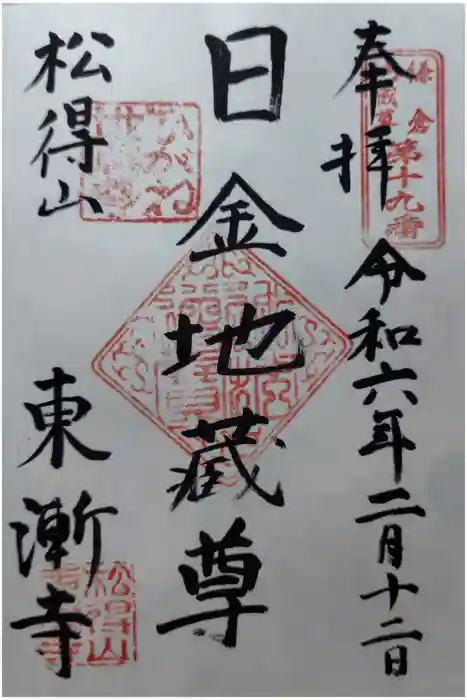 奉拝
鎌倉
地蔵尊
第十九番
令和六年二月十二日
日金地蔵尊
松得山
ひがね
東漸寺
松得山